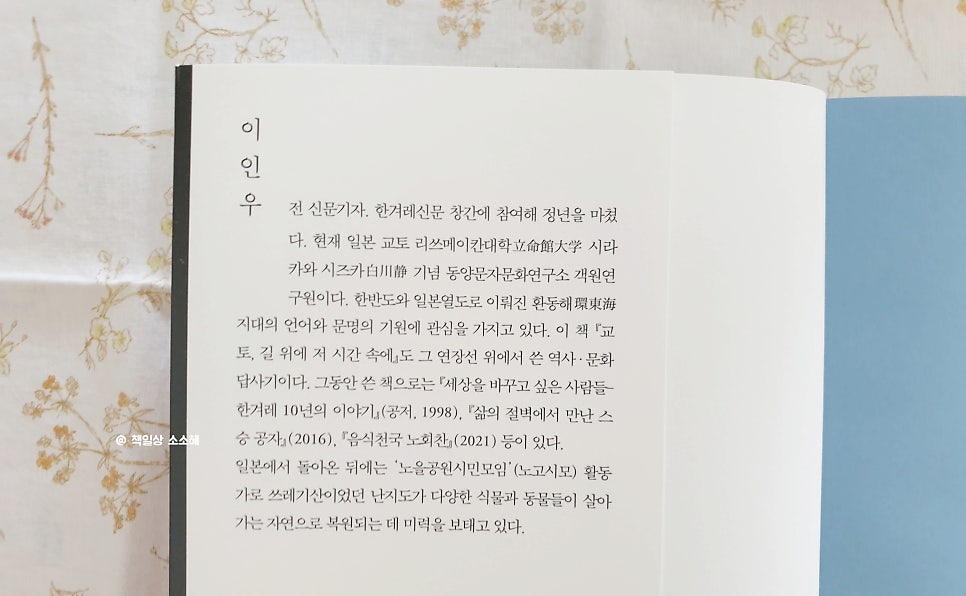 이
인
우
전 신문기자. 한겨레신문 창간에 참여해 정년을 마쳤
다. 현재 일본 교토 리쓰메이칸대학立命館大学 시라
카와 시즈카白川静 기념 동양문자문화연구소 객원연
구원이다. 한반도와 일본열도로 이뤄진 환동해環東海
지대의 언어와 문명의 기원에 관심을 가지고 있다. 이 책 『교
토, 길 위에 저 시간 속에』도 그 연장선 위에서 쓴 역사·문화
답사기이다. 그동안 쓴 책으로는 『세상을 바꾸고 싶은 사람들-
한겨레 10년의 이야기』(공저, 1998), 『삶의 절벽에서 만난 스
승 공자』(2016), 『음식천국 노회찬』(2021) 등이 있다.
일본에서 돌아온 뒤에는 '노을공원시민모임'(노고시모) 활동
가로 쓰레기산이었던 난지도가 다양한 식물과 동물들이 살아
가는 자연으로 복원되는 데 미력을 보태고 있다.
@ 책일상 소소해